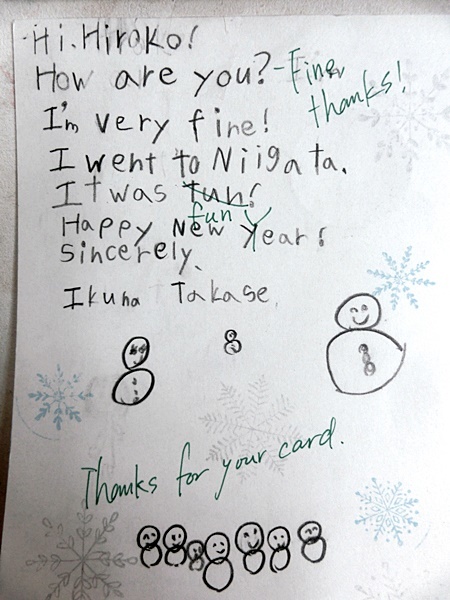 Hi. Hiroko!
How are you? - Fine, thanks!
I'm very fine!
I went to Niigata.
It was fun!
fun
Happy New Year!
Sincerely,
Ikuna Takase.
Thanks for your card.